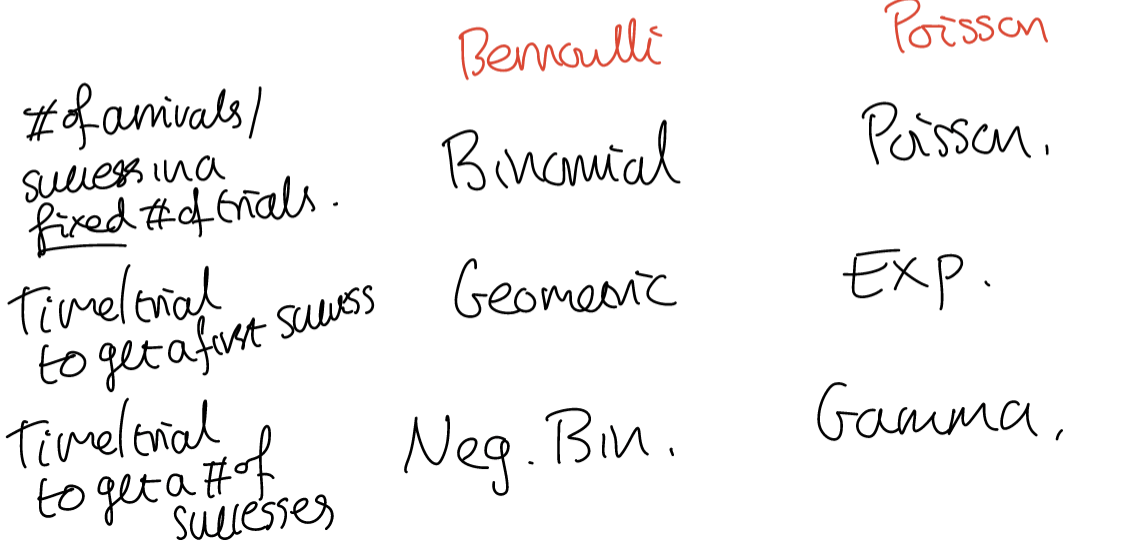 Bernoulli Poisson
# of arrivals/
success in a
fixed # of trials.
Binomial Poisson.
Time/trial
to get a first success
Geometric Exp.
Time/trial
to get a # of
successes
Neg. Bin. Gamma.